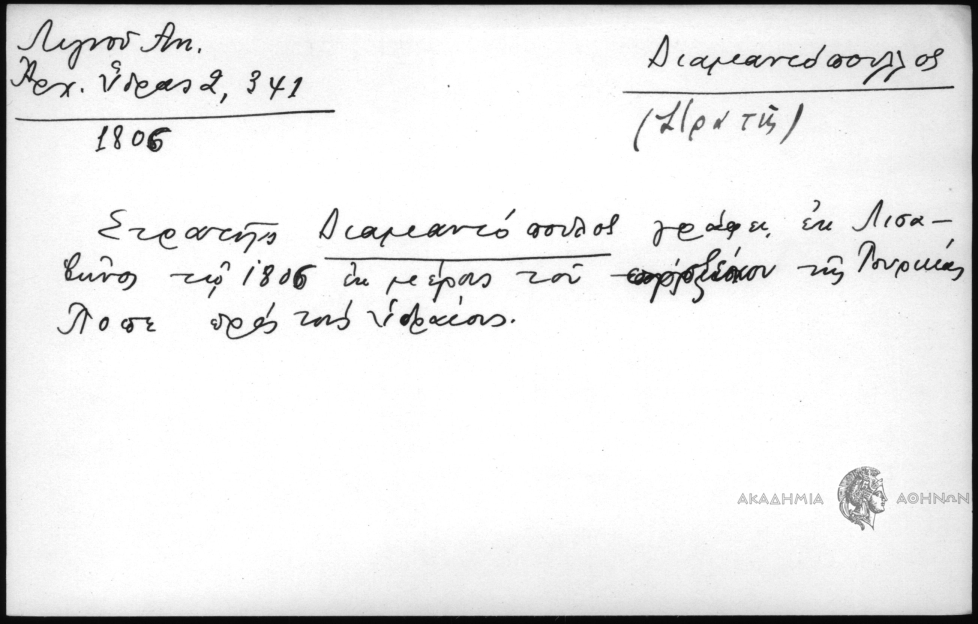 Λιγνοῦ Αν.
Ἀρχ. Ὕδρας 2, 341
1806
Διαμαντόπουλλος
(Στρατῆς)
Στρατῆς Διαμαντόπουλος γράφει ἐκ Λισα-
βῶνος τῷ 1806 ἐκ μέρους τοῦ τῆς Τουρκίας
πρὸς τοὺς Ὑδραίους.
ΑΚΑΔΗΜΙΑ ΑΘΗΝΩΝ